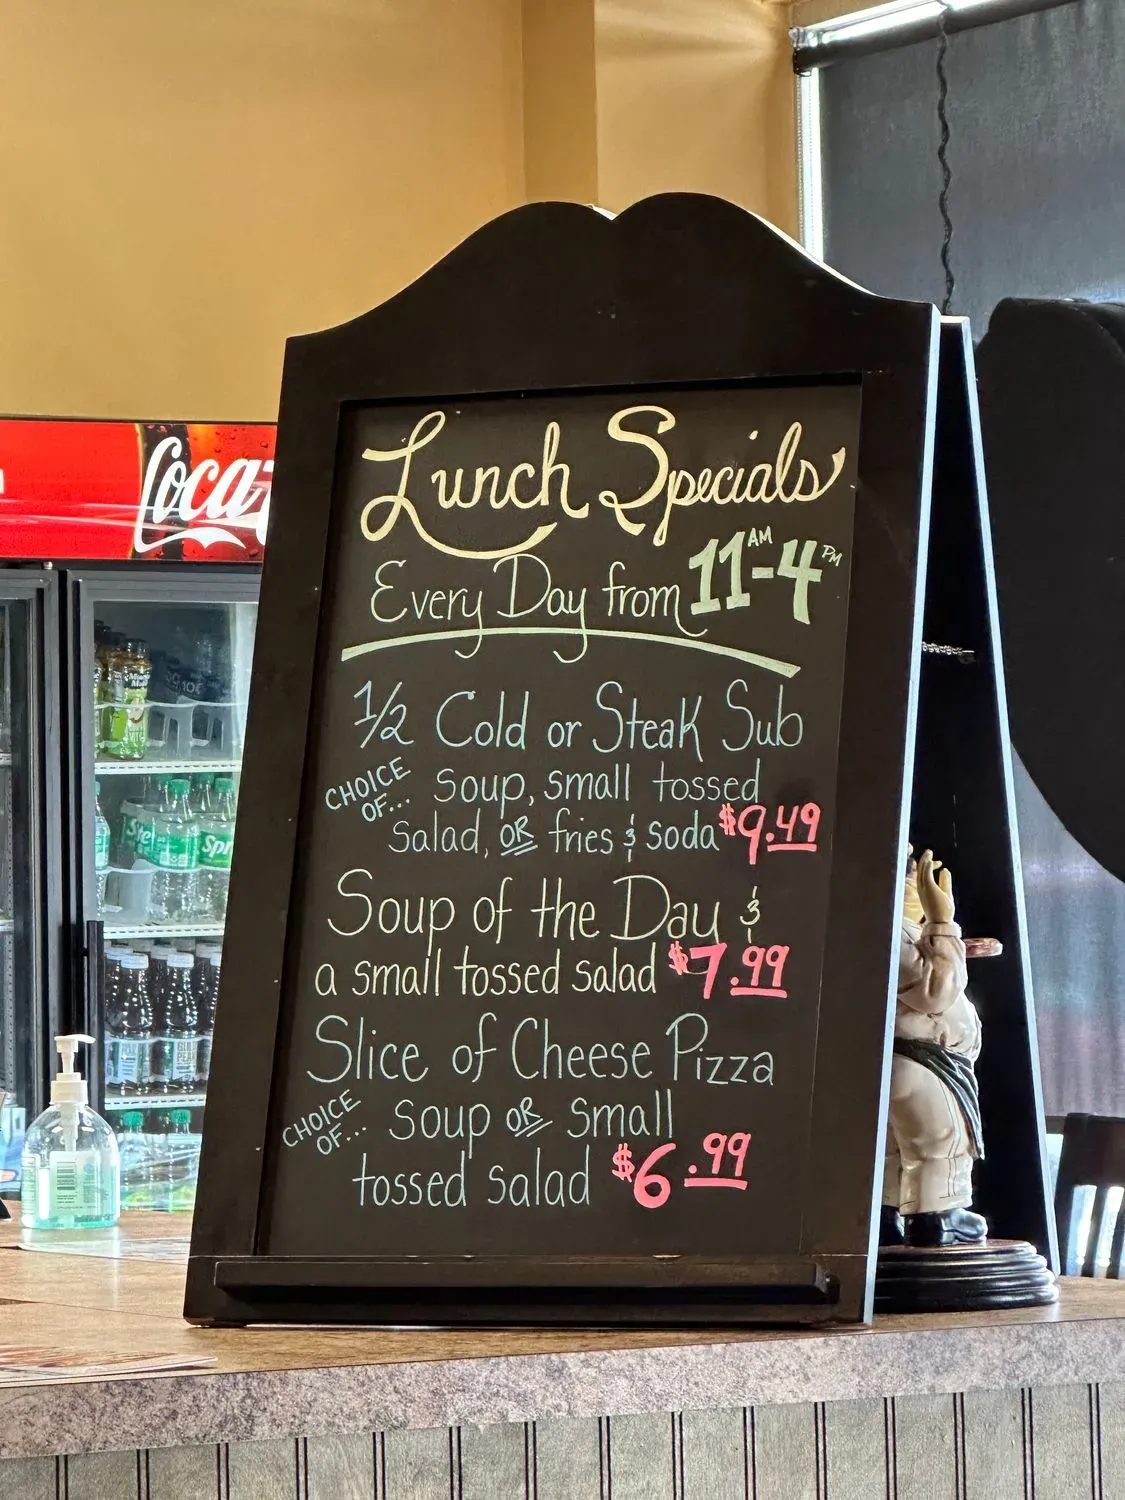 Coca
Lunch Specials
Every Day from 11AM-4PM
1/2 Cold or Steak Sub
CHOICE OF... Soup, small tossed
Salad, OR fries & soda $9.49
Soup of the Day &
a small tossed salad $7.99
Slice of Cheese Pizza
CHOICE OF... Soup OR Small
tossed salad $6.99